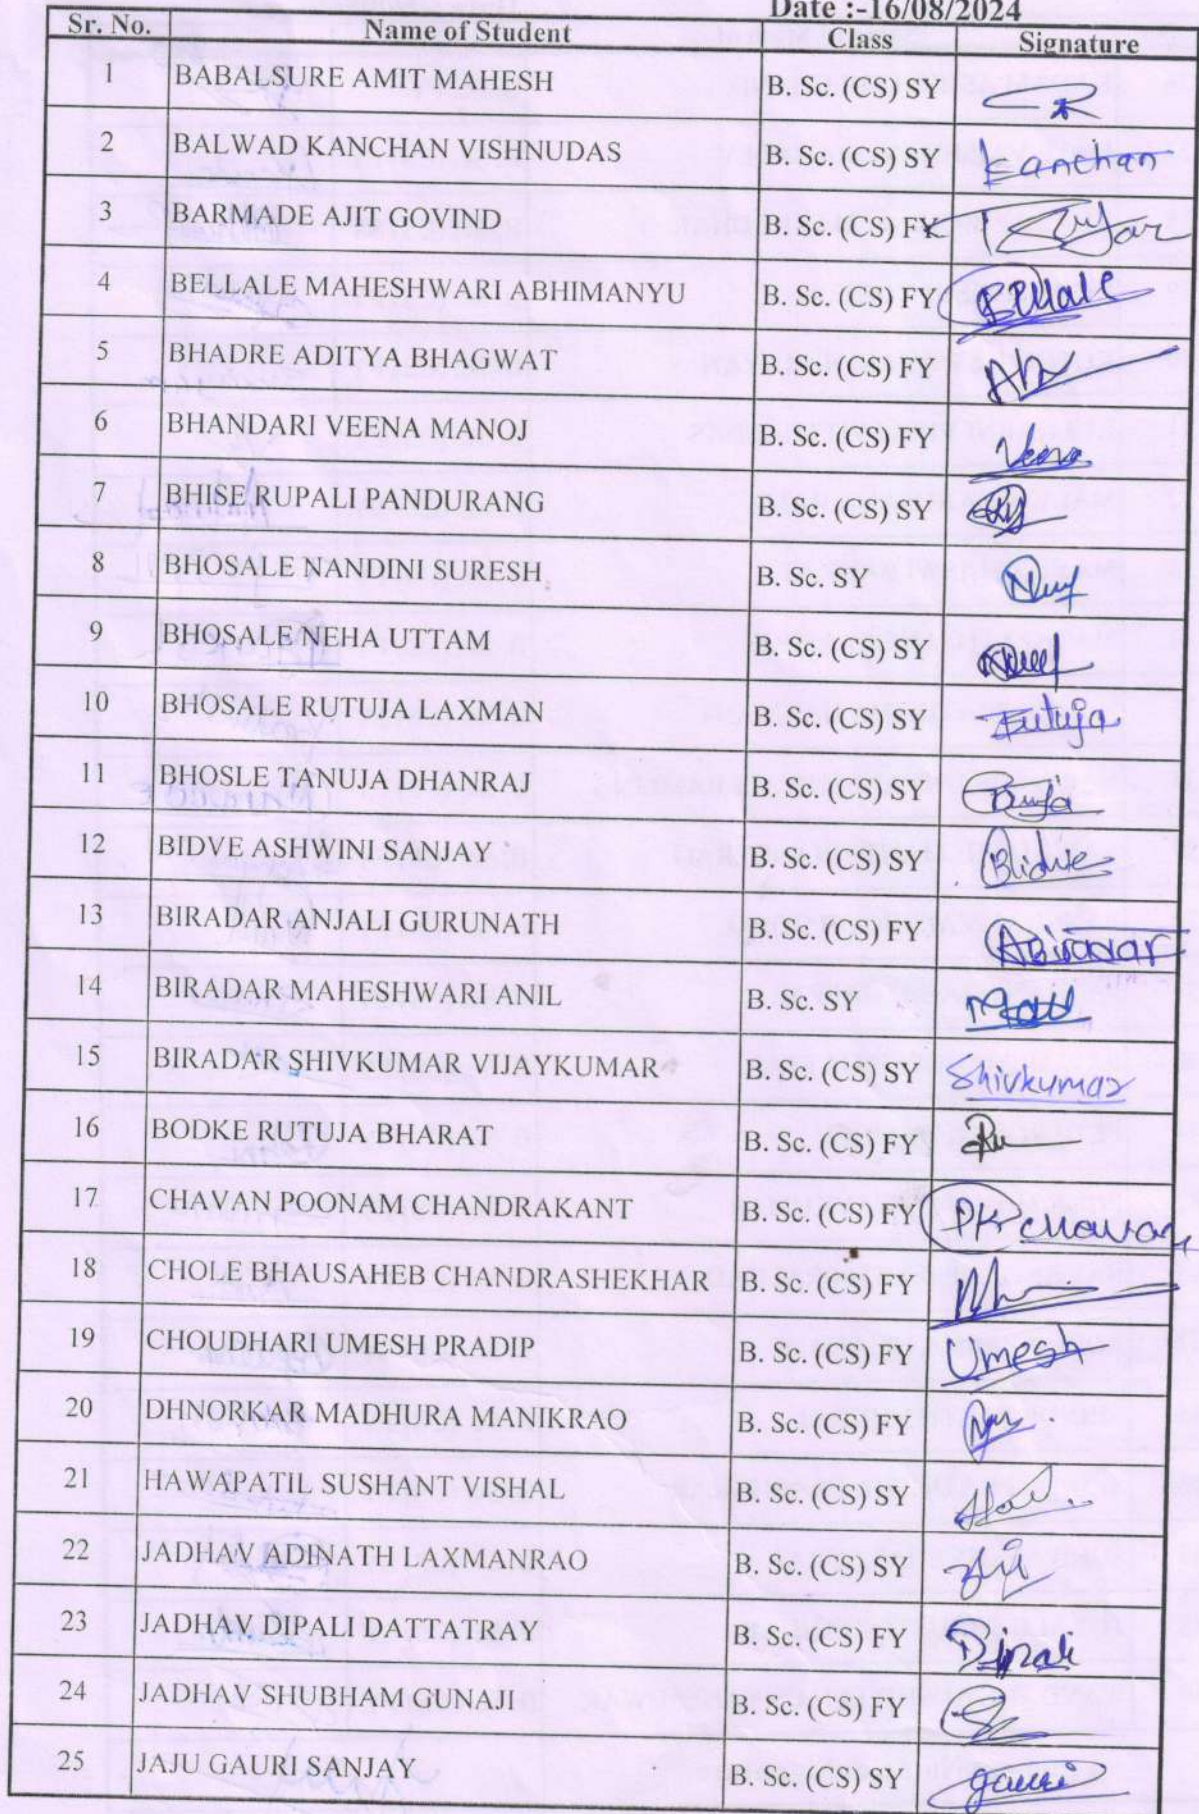 Date :-16/08/2024
Sr. No. Name of Student Class Signature
1 BABALSURE AMIT MAHESH B. Sc. (CS) SY
2 BALWAD KANCHAN VISHNUDAS B. Sc. (CS) SY Kanchan
3 BARMADE AJIT GOVIND B. Sc. (CS) FY
4 BELLALE MAHESHWARI ABHIMANYU B. Sc. (CS) FY Bellale
5 BHADRE ADITYA BHAGWAT B. Sc. (CS) FY
6 BHANDARI VEENA MANOJ B. Sc. (CS) FY Veena
7 BHISE RUPALI PANDURANG B. Sc. (CS) SY
8 BHOSALE NANDINI SURESH B. Sc. SY
9 BHOSALE NEHA UTTAM B. Sc. (CS) SY
10 BHOSALE RUTUJA LAXMAN B. Sc. (CS) SY Rutuja
11 BHOSLE TANUJA DHANRAJ B. Sc. (CS) SY
12 BIDVE ASHWINI SANJAY B. Sc. (CS) SY Bidve
13 BIRADAR ANJALI GURUNATH B. Sc. (CS) FY ABiradar
14 BIRADAR MAHESHWARI ANIL B. Sc. SY
15 BIRADAR SHIVKUMAR VIJAYKUMAR B. Sc. (CS) SY Shivkumar
16 BODKE RUTUJA BHARAT B. Sc. (CS) FY Ru
17 CHAVAN POONAM CHANDRAKANT B. Sc. (CS) FY PK chavan
18 CHOLE BHAUSAHEB CHANDRASHEKHAR B. Sc. (CS) FY
19 CHOUDHARI UMESH PRADIP B. Sc. (CS) FY Umesh
20 DHNORKAR MADHURA MANIKRAO B. Sc. (CS) FY
21 HAWAPATIL SUSHANT VISHAL B. Sc. (CS) SY
22 JADHAV ADINATH LAXMANRAO B. Sc. (CS) SY
23 JADHAV DIPALI DATTATRAY B. Sc. (CS) FY Dipali
24 JADHAV SHUBHAM GUNAJI B. Sc. (CS) FY
25 JAJU GAURI SANJAY B. Sc. (CS) SY gauri